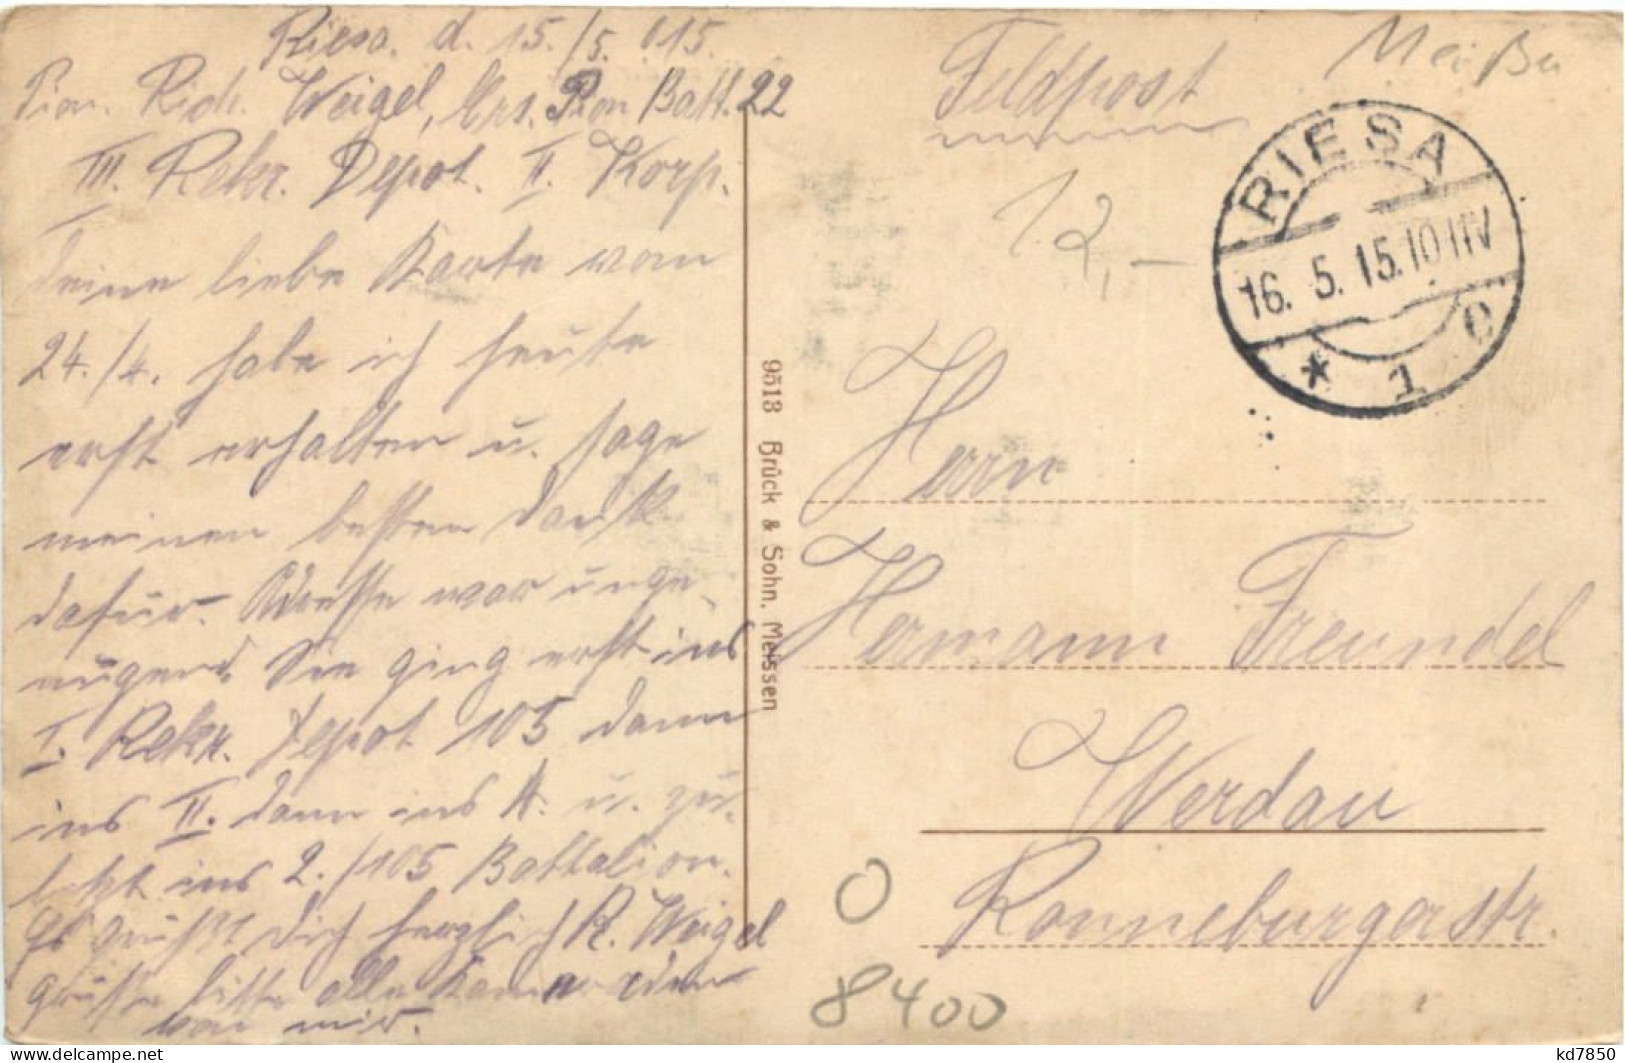 Riesa. d. 15./5. 015.
Pion. Rich. Weigel, Ers. Pion Batt. 22
III. Rekr. Depot. II. Korp.
Deine liebe Karte vom
24./4. habe ich heute
erst erhalten u. sage
meinen besten Dank
dafür. Adresse war unge-
nügend. Sie ging erst ins
I. Rekr. Depot 105 dann
ins II. dann ins A. u. zu-
letzt ins 2./105 Battalion.
Es grüßt Dich herzlich R. Weigel
Grüße bitte alle Kameraden
von mir.
9513 Brück & Sohn, Meissen
Feldpost
Meißen
12,-
RIESA
16. 5. 15. 10-11V
* 1 e
Herrn
Hermann Freundel
Werdau
Ronneburgerstr.
0
8400
kd7850